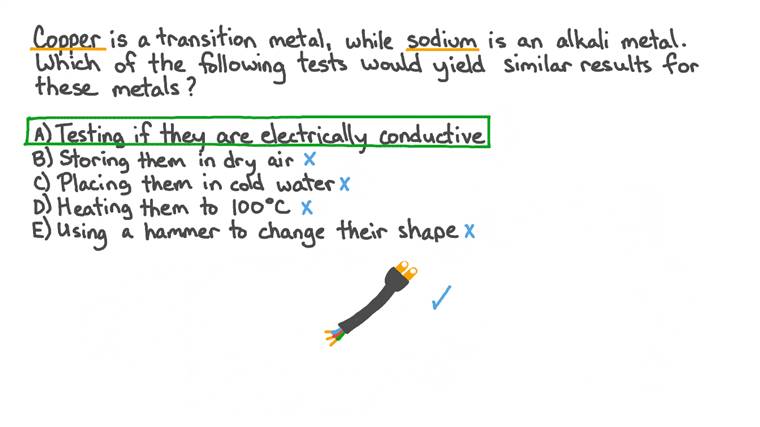 Copper is a transition metal, while sodium is an alkali metal.
Which of the following tests would yield similar results for
these metals?
A) Testing if they are electrically conductive
B) Storing them in dry air x
C) Placing them in cold water x
D) Heating them to 100°C x
E) Using a hammer to change their shape x
✓